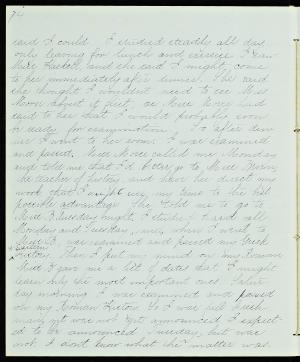 72
said I could. I studied steadily all day
only leaving for lunch and exercise. I saw
Miss and she said I might come
to her immediately after dinner. She said
she thought I wouldn't need to see Miss
about it first, as Miss had
said to her that I would probably soon
be ready for examination. So after din-
ner I went to her room. I was examined
and passed. Miss called me Monday
and told me that I'd better go to Miss
teacher of history and have her select my
work that I might use my time to the best
possible advantage. She told me to go to
Miss B. Tuesday night. I studied hard all
Monday and Tuesday, and, when I went to
Miss B., was examined and passed my Greek
History. Then I put my mind on my Roman
Miss B gave me a list of dates that I might
learn only the most important ones. Satur-
day morning I was examined and passed
on my Roman History. So I was
not yet announced. I expect-
ed to be announced Tuesday, but was
not. I don't know what the matter was.